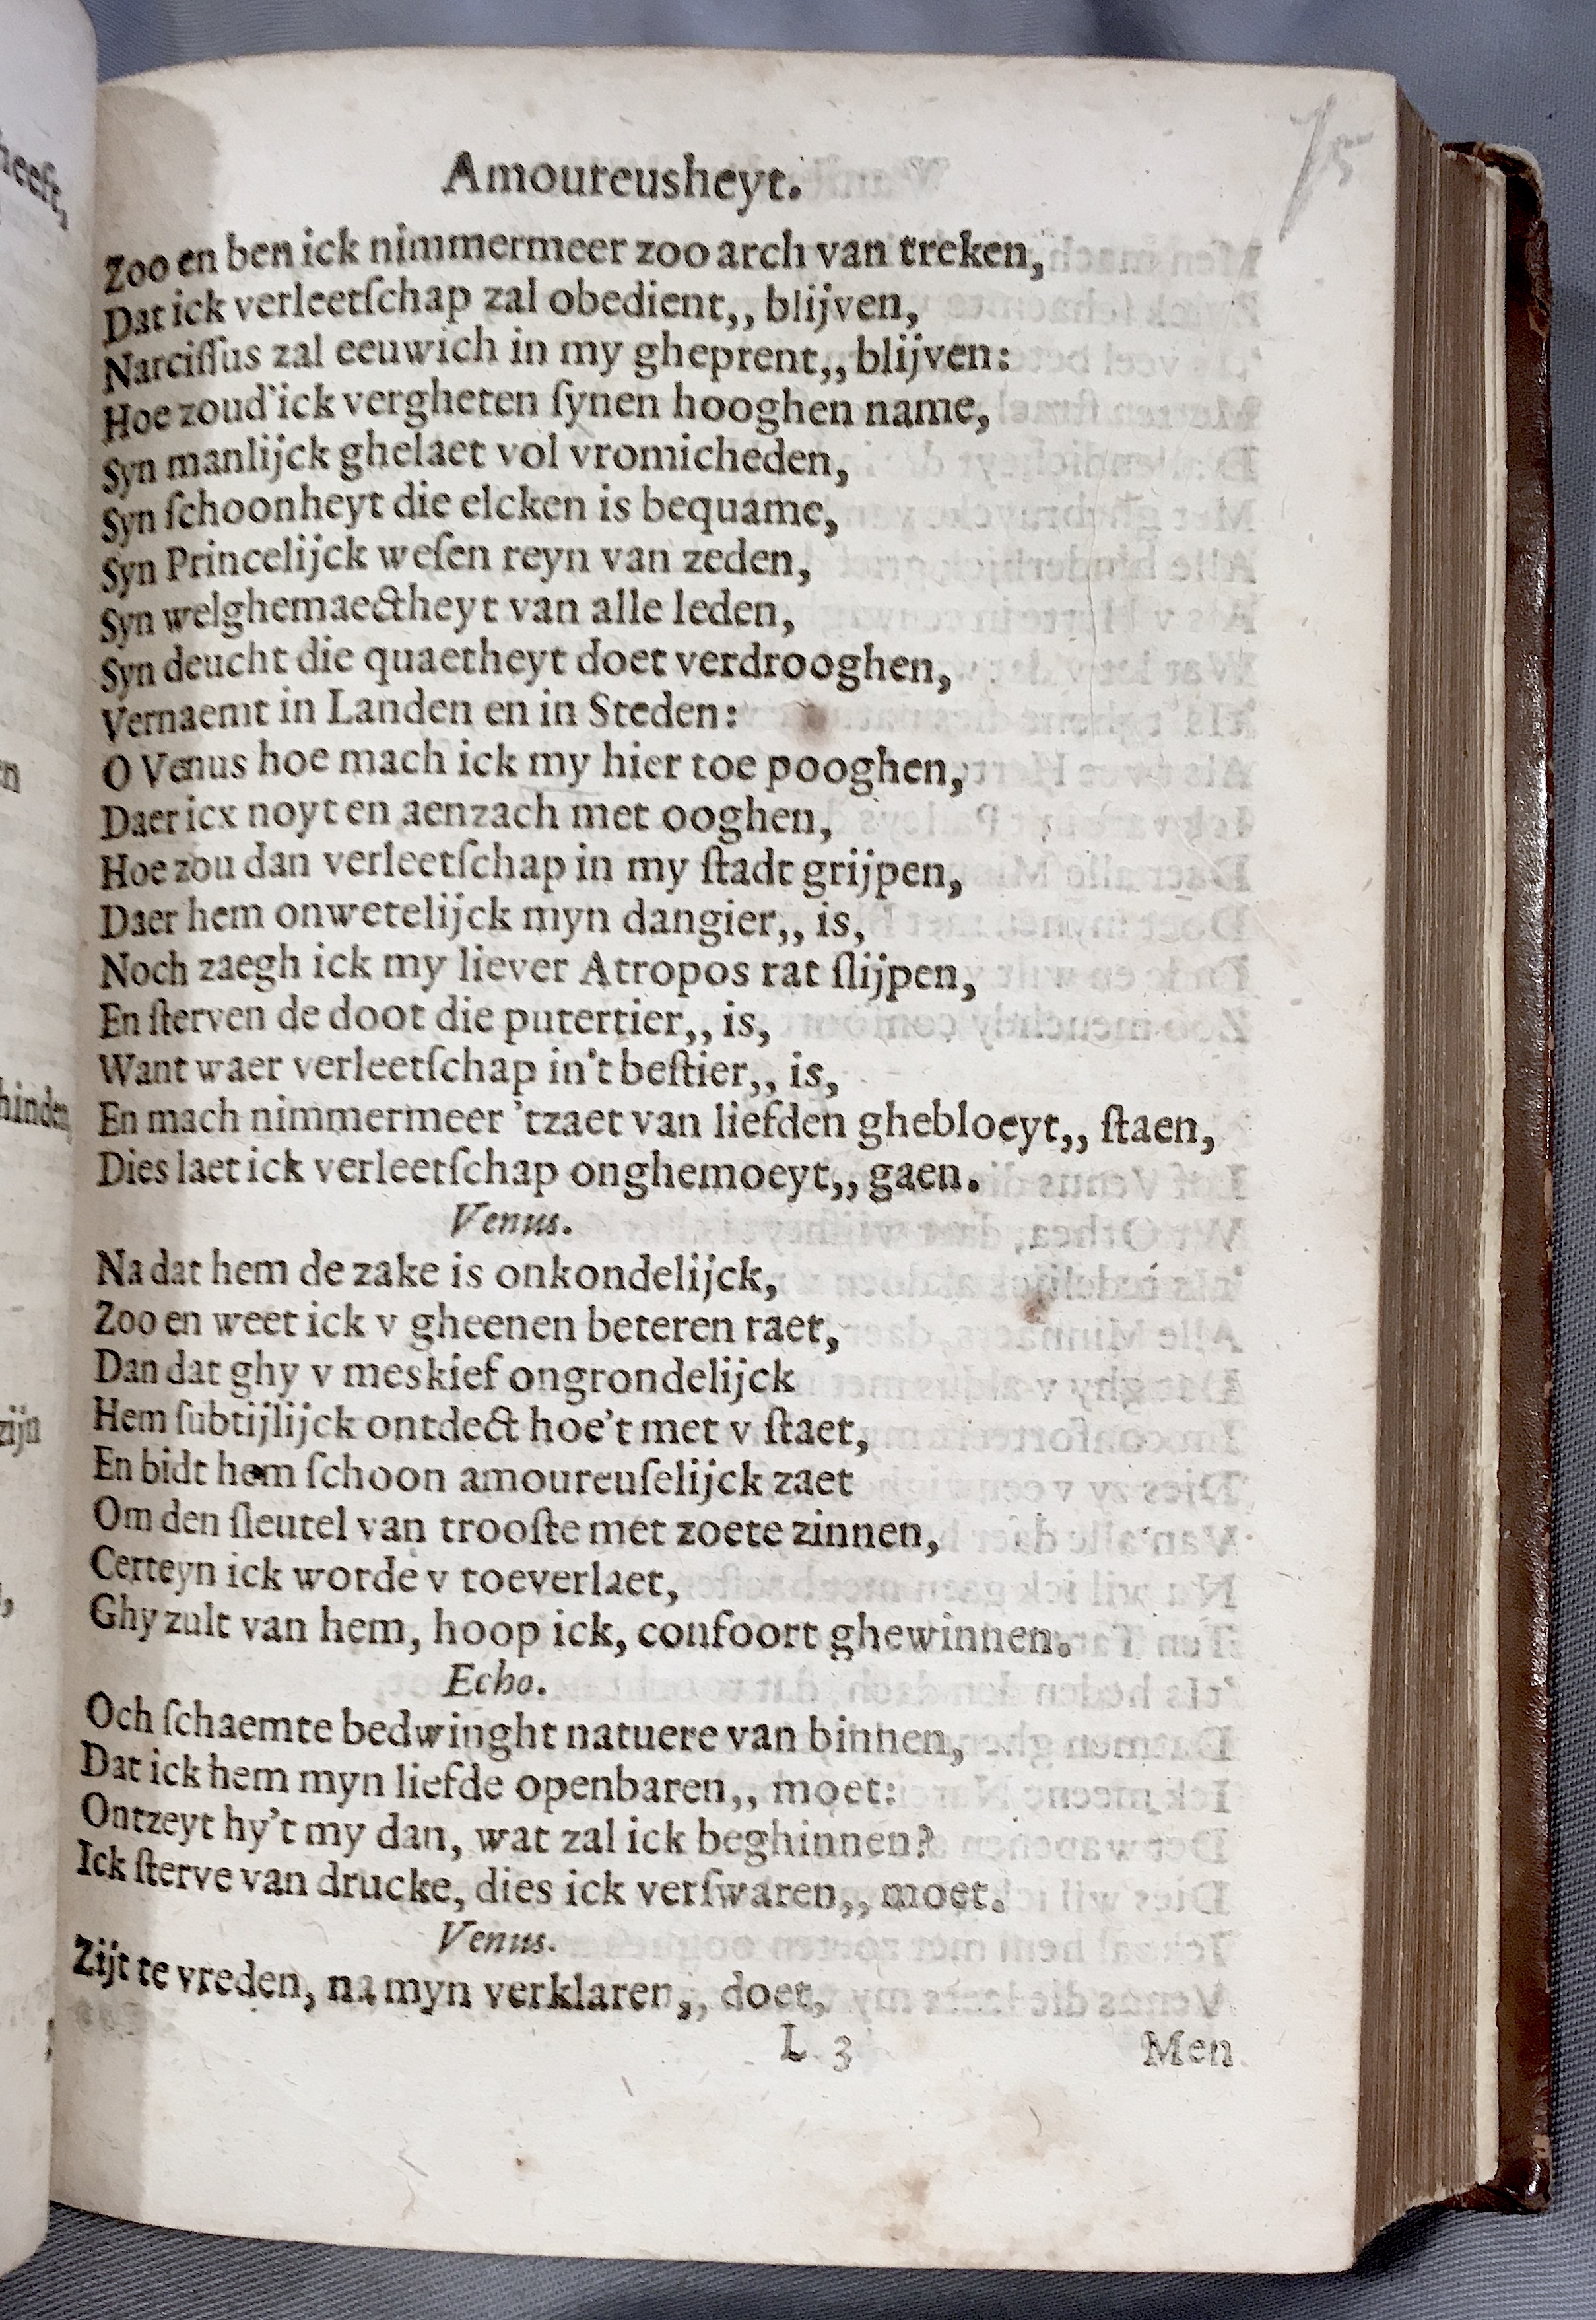 75
Amoureusheyt.
Zoo en ben ick nimmermeer zoo arch van treken,
Dat ick verleetſchap zal obedient,, blijven,
Narciſſus zal eeuwich in my gheprent,, blijven:
Hoe zoud'ick vergheten ſynen hooghen name,
Syn manlijck ghelaet vol vromicheden,
Syn ſchoonheyt die elcken is bequame,
Syn Princelijck weſen reyn van zeden,
Syn welghemaectheyt van alle leden,
Syn deucht die quaetheyt doet verdrooghen,
Vernaemt in Landen en in Steden:
O Venus hoe mach ick my hier toe pooghen,
Daer icx noyt en aenzach met ooghen,
Hoe zou dan verleetſchap in my ſtadt grijpen,
Daer hem onwetelijck myn dangier,, is,
Noch zaegh ick my liever Atropos rat ſlijpen,
En ſterven de doot die putertier,, is,
Want waer verleetſchap in't beſtier,, is,
En mach nimmermeer 'tzaet van liefden ghebloeyt,, ſtaen,
Dies laet ick verleetſchap onghemoeyt,, gaen.
Venus.
Na dat hem de zake is onkondelijck,
Zoo en weet ick v gheenen beteren raet,
Dan dat ghy v meskief ongrondelijck
Hem ſubtijlijck ontdect hoe't met v ſtaet,
En bidt hem ſchoon amoureuſelijck zaet
Om den ſleutel van trooſte met zoete zinnen,
Certeyn ick worde v toeverlaet,
Ghy zult van hem, hoop ick, confoort ghewinnen.
Echo.
Och ſchaemte bedwinght natuere van binnen,
Dat ick hem myn liefde openbaren,, moet:
Ontzeyt hy't my dan, wat zal ick beghinnen?
Ick ſterve van drucke, dies ick verſwaren,, moet.
Venus.
Zijt te vreden, na myn verklaren,, doet,
L 3
Men
heeft,
en
hinden,
zijn